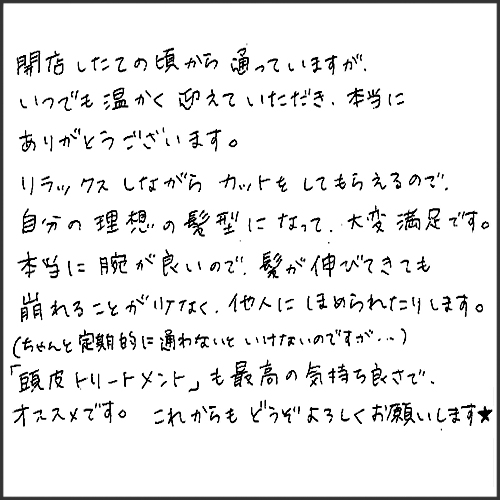 開店したての頃から通っていますが、
いつでも温かく迎えていただき、本当に
ありがとうございます。
リラックスしながらカットをしてもらえるので、
自分の理想の髪型になって、大変満足です。
本当に腕が良いので、髪が伸びてきても
崩れることが少なく、他人にほめられたりします。
(ちゃんと定期的に通わないといけないのですが…)
「頭皮トリートメント」も最高の気持ち良さで、
オススメです。 これからもどうぞよろしくお願いします★